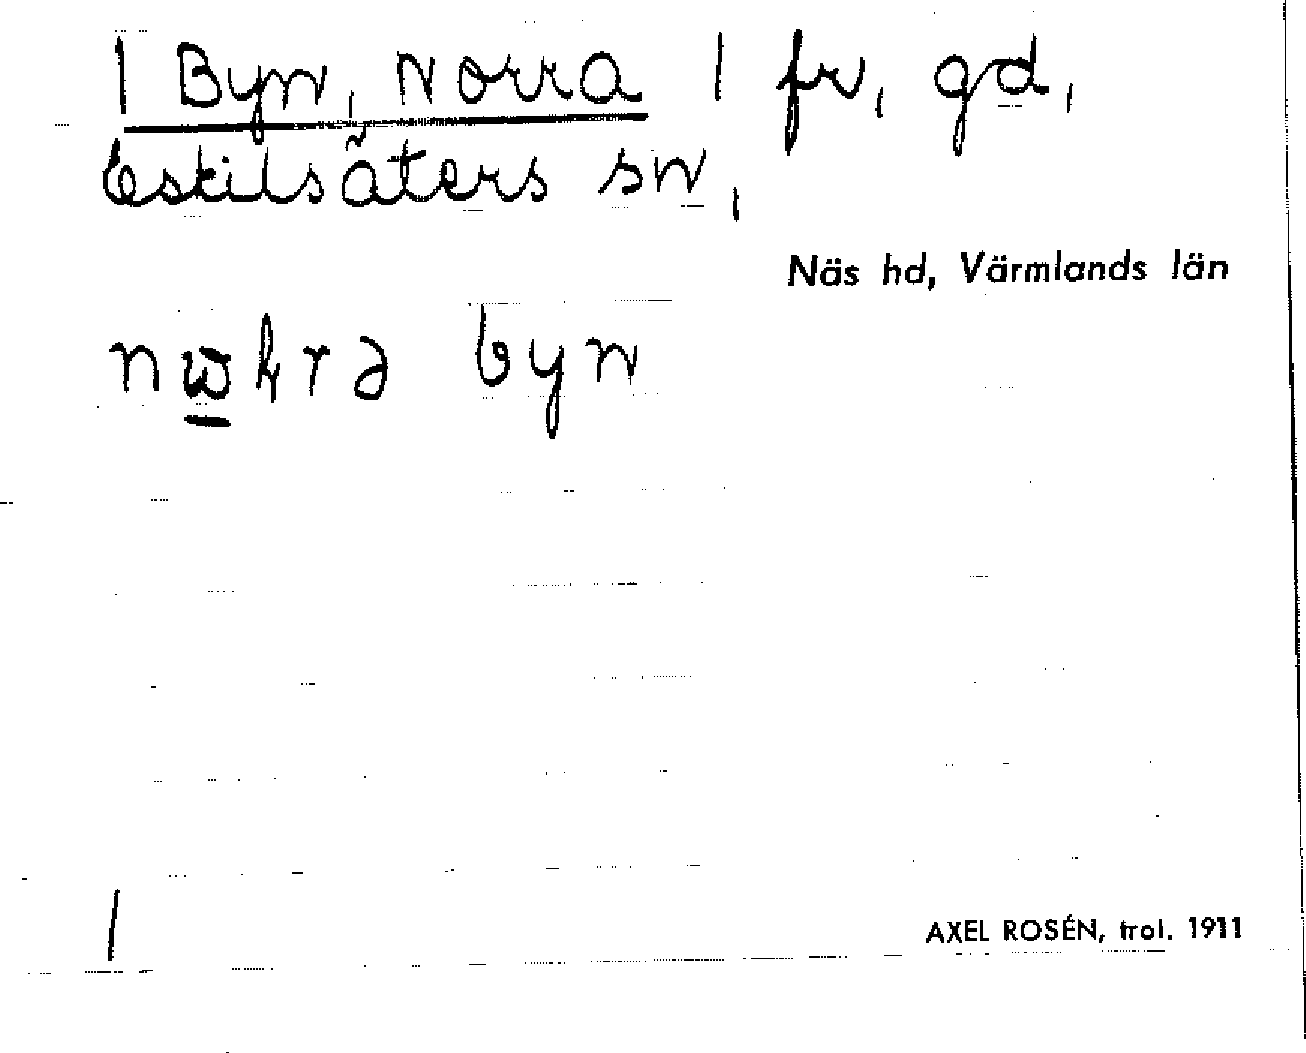 | Byn, Norra | fr, gd,
Eskilsäters sn,
Näs hd, Värmlands län
byn
|
AXEL ROSÉN, trol. 1911